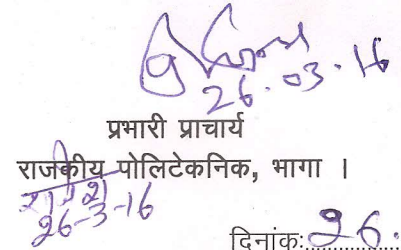 26.03.16
प्रभारी प्राचार्य
राजकीय पोलिटेकनिक, भागा ।
26-3-16
दिनांक:..26.